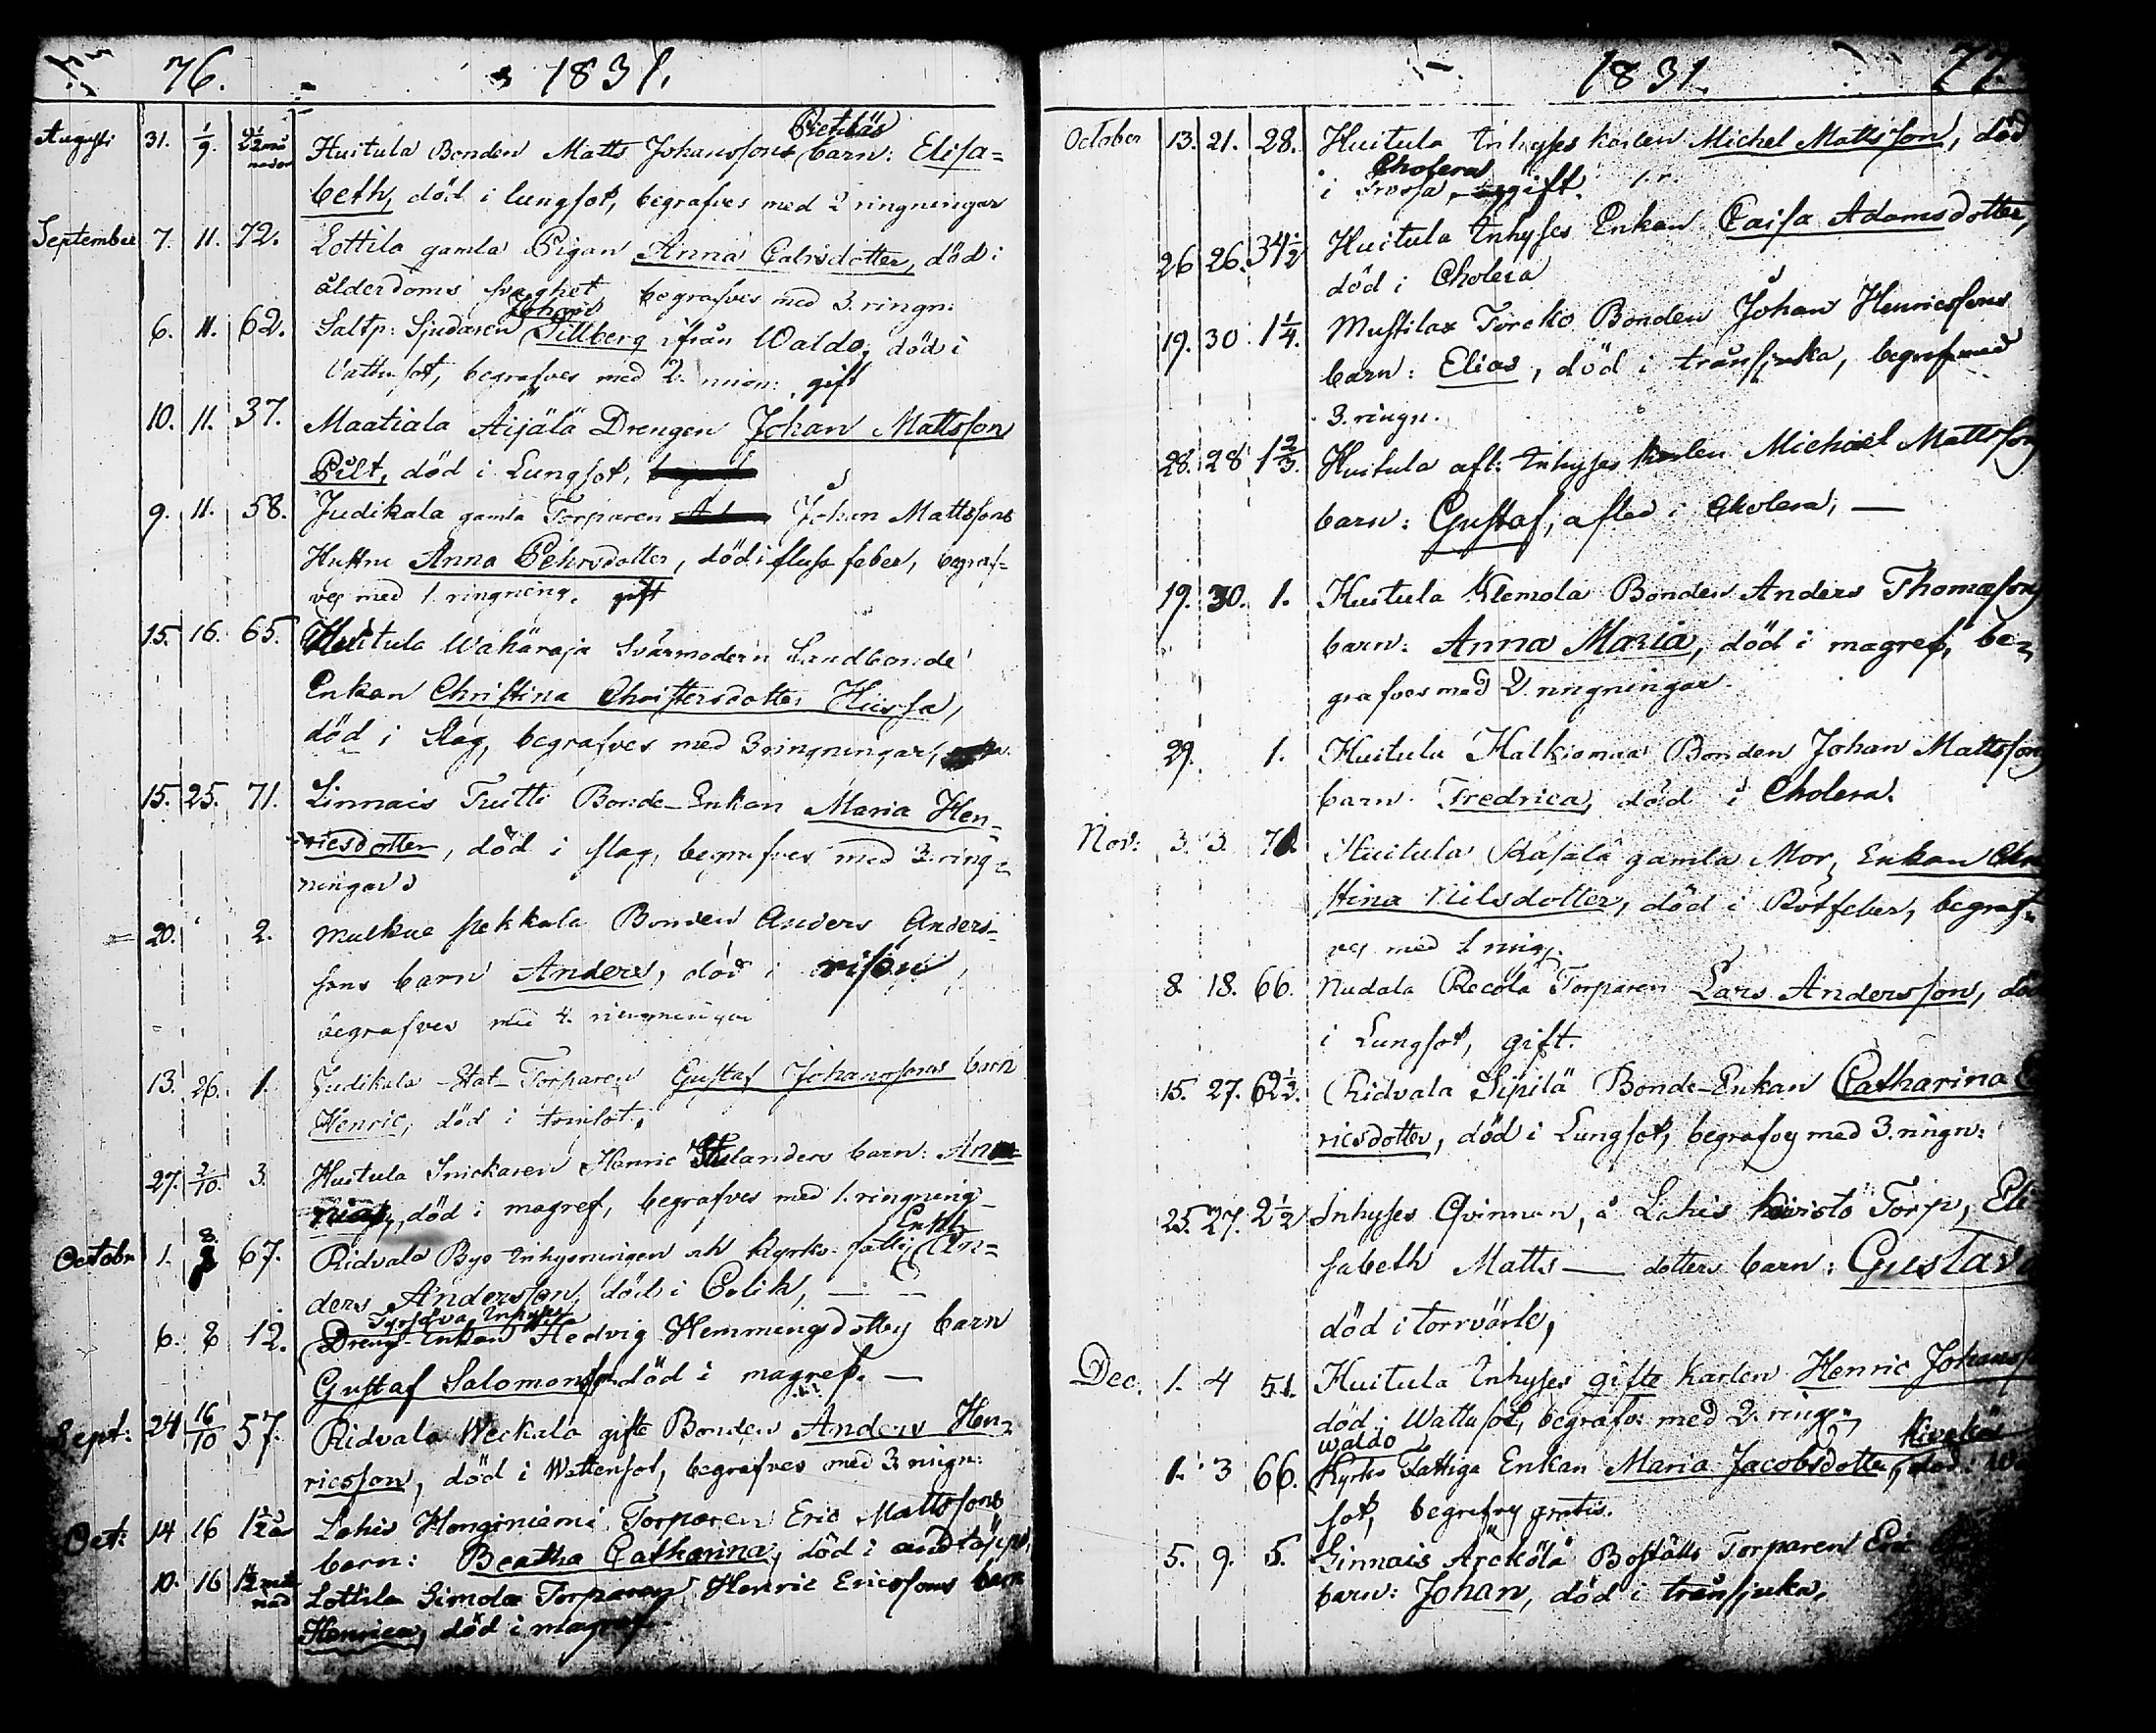 76. 1831.
Augusti 31. 1/9. Huitula Bonden Matts Johanssons Pietiläs barn: Elisa=
beth, död i lungsot, begrafves med 2 ringningar
September 7. 11. 72. Lottila gamla Pigan Anna Calsdotter, död i
ålderdoms svaghet begrafves med 3. ringn:
6. 11. 62. Saltp: Sjudaren Johan Tillberg ifrån Waldo, död i
Vattusot, begrafves med 2. gift
10. 11. 37. Maatiala Äijälä Drengen Johan Mattsson
Pilt, död i Lungsot,
9. 11. 58. Judikala gamla Torparen Johan Mattssons
Hustru Anna Pehrsdotter, död i fluss feber, begraf=
ves med 1. ringning. gift
15. 16. 65. Huitula Wahäraja Svärmodern Landbonde
Enkan Christina Christersdotter Hiissa,
död i Slag, begrafves med 3 ringningar,
15. 25. 71. Linnais Tuitti Bonde-Enkan Maria Hen=
ricsdotter, död i slag, begrafves med 3. ring=
ningar
20. 2. Mälkue Pekkala Bonden Anders Anders=
sons barn Anders, död i
begrafves med 4. ringningar
13. 26. 1. Judikala Stat-Torparen Gustaf Johanssons barn
Henric, död i
27. 2/10. 3. Huitula Snickaren Henric barn:
död i magref, begrafves med 1. ringning
Octobr 1. 8. 67. Ridvala Bys Inhysningen och Kyrko-fattig Enkl. An=
ders Andersson, död i Colik, —
6. 8 12. Inhyses
Dreng-Enkan Hedvig Hemmingsdotters barn
Gustaf Salomonss. död i magref. —
Sept: 24 16/10 57. Ridvala Weckala gifte Bonden Anders Hen=
ricsson, död i Wattensot, begrafves med 3. ringn:
Oct: 14 16 1 1/2 år Lahis Honginiemi Torparen Eric Mattssons
barn: Beatha Catharina, död i andtäppa,
10. 16 1 1/2 må
nad Lottila Simola Torparen Henric Ericssons barn
Henrica, död i magref.
1831. 77.
October 13. 21. 28. Huitula Inhyses karlen Michel Mattsson, död
i Frossa Cholera gift.
26 26. 34 1/2 Huitula Inhyses Enkan Caisa Adamsdotter,
död i Cholera
19. 30. 1 1/4. Mustila Torcko Bonden Johan Henricssons
barn: Elias, död i trånsjuka, begraf med
3. ringn.
28. 28 1 2/3. Huitula afl: Inhyses karlen Michael Mattssons
barn: Gustaf, afled i Cholera, —
19. 30. 1. Huitula Klemola Bonden Anders Thomassons
barn: Anna Maria, död i magref, be=
grafves med 2. ringningar
29. 1. Huitula Halkiomaa Bonden Johan Mattssons
barn Fredrica, död i Cholera.
Nov: 3. 3. Huitula Kasala gamla Mor, Enkan Chri
stina Nilsdotter, död i Rötfeber, begraf=
ves med 1 ring.
8. 18. 66. Nudala Recola Torparen Lars Andersson, död
i Lungsot, gift.
15. 27. 62 1/2. Ridvala Sipilä Bonde-Enkan Catharina
ricsdotter, död i Lungsot, begrafves med 3. ringn:
25. 27. 2 1/2 Inhyses Qvinnan, å Lahis Koivisto Torp, Eli
sabeth Matts — dotters barn: Gustava
död i torrvärk,
Dec. 1. 4 51. Huitula Inhyses gifte karlen Henric Johansson
död i Wattusot, begrafv: med 2. ringn.
1. 3 66. Waldo Kyrko Fattiga Enkan Maria Jacobsdotter, Kivekäs död i
sot, begrafves gratis.
5. 9. 5. Linnais Arckölä Boställs Torparen Eric
barn: Johan, död i trånsjuka.